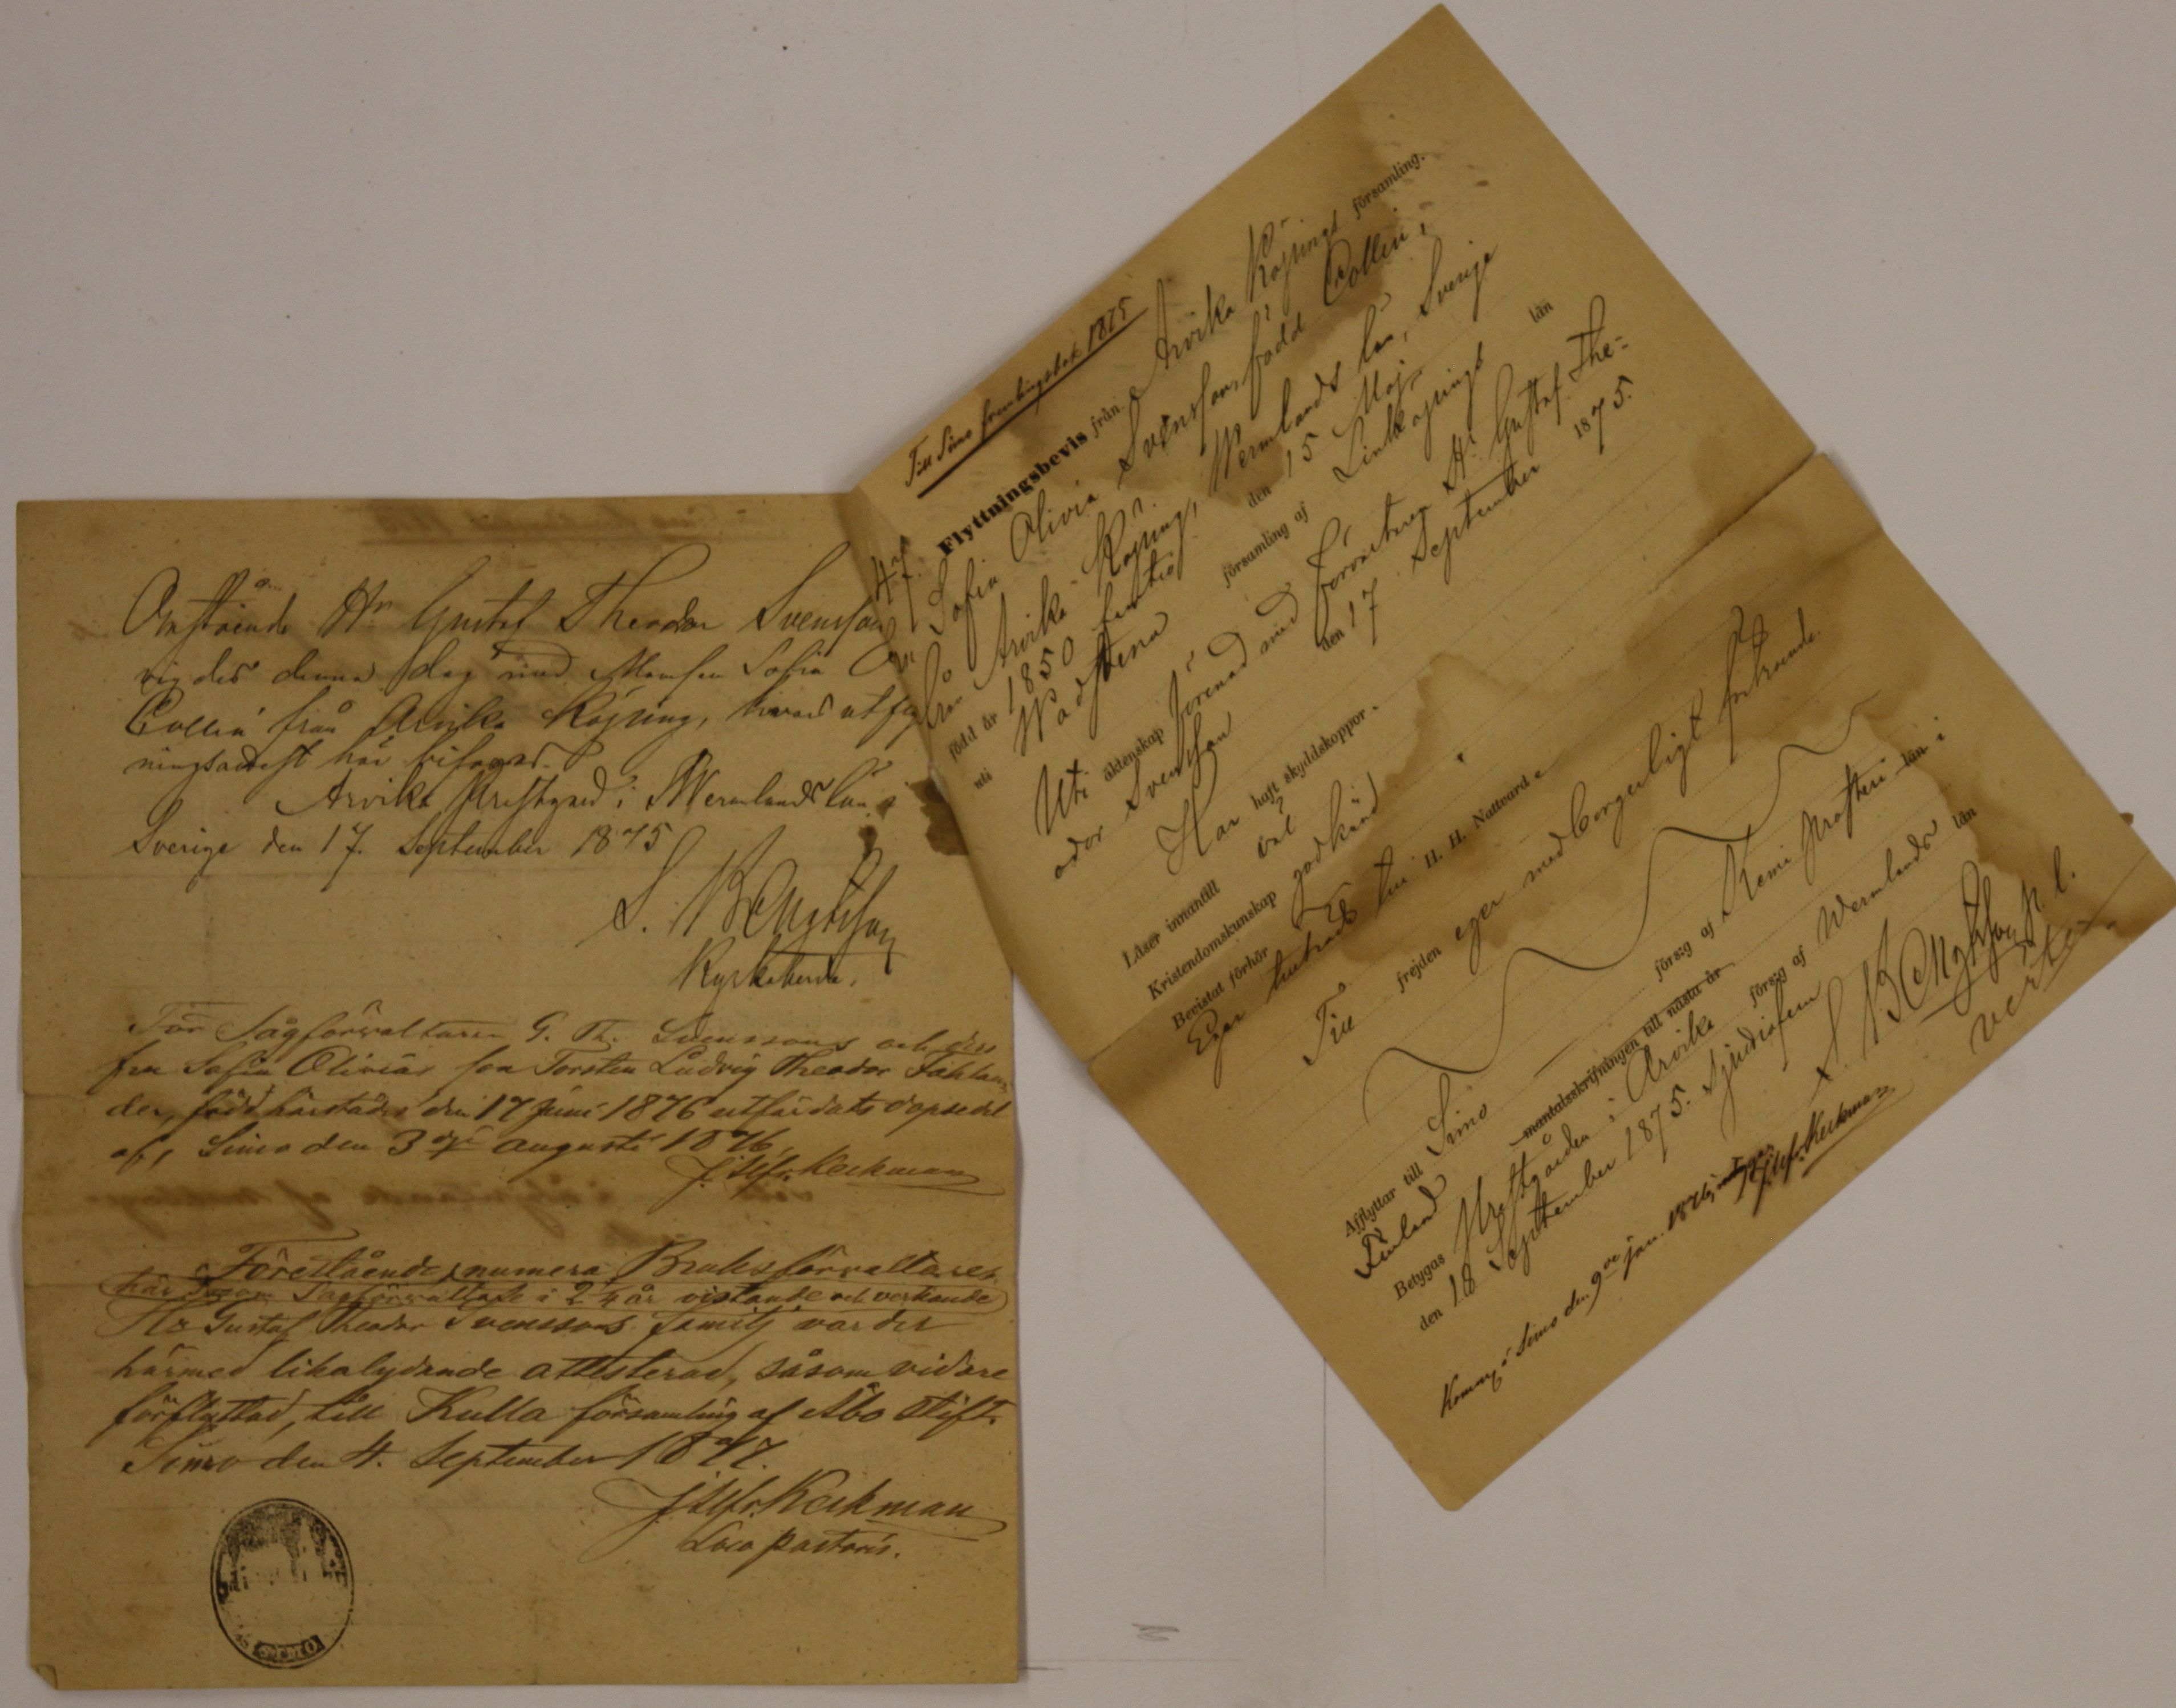 Omstående Hr Gustaf Theodor Svensson
vigdes denna dag med Mamsen Sofia
Collin från Arvika Köping, hvars utfly
ningsattest här bifogas.
Arvika Prestgård i Wermlands län,
Sverige den 17. September 1875
S. Bengtsson
Kyrkoherde.
För Sågförvaltaren G. Th. Svenssons och dess
fru Sofia Olivias son Torsten Ludvig Theodor Fahlan
der, född härstädes den 17 Juni 1876 utfärdats dopsedel
af, Simo den 3dje augusti 1876,
Keckman
Förestående, numera Bruksförvaltares,
här såsom Sagförvaltare i 2 1/4 år vistande och verkande
Hr Gustaf Theodor Svenssons familj varder
härmed likalydande attesterad, såsom vidare
förflyttad, till Kulla församling af Åbo Stift.
Simo den 4. September 1877.
Keckman
Loco pastoris.
SIMO
Till Simo 1875
Flyttningsbevis från Arvika Köpings församling.
Sofia Olivia Svensson, född Collin,
från Arvika Köping, Wermlands län, Sverige
född år 1850 femtio den 15 Maj
uti Wadstena församling af Linköpings län
Uti äktenskap förenad med Förvaltaren Hr Gustaf The-
odor Svensson den 17 September 1875.
Har haft skyddskoppor.
Läser innantill väl
Kristendomskunskap godkänd
Bevistat förhör
Eger tillträde till H. H. Nattvard
Till frejden eger medborgerligt förtroende.
Afflyttar till Simo förs:g af Kemi prosteri län i
Finland mantalsskrifningen till nästa år
Betygas Prestgården i Arvika förs:g af Wermlands län
den 18 September 1875. Sjuttiofem
S. Bengtsson p. l.
verte
Simo den 9de jan. 1876, Keckman